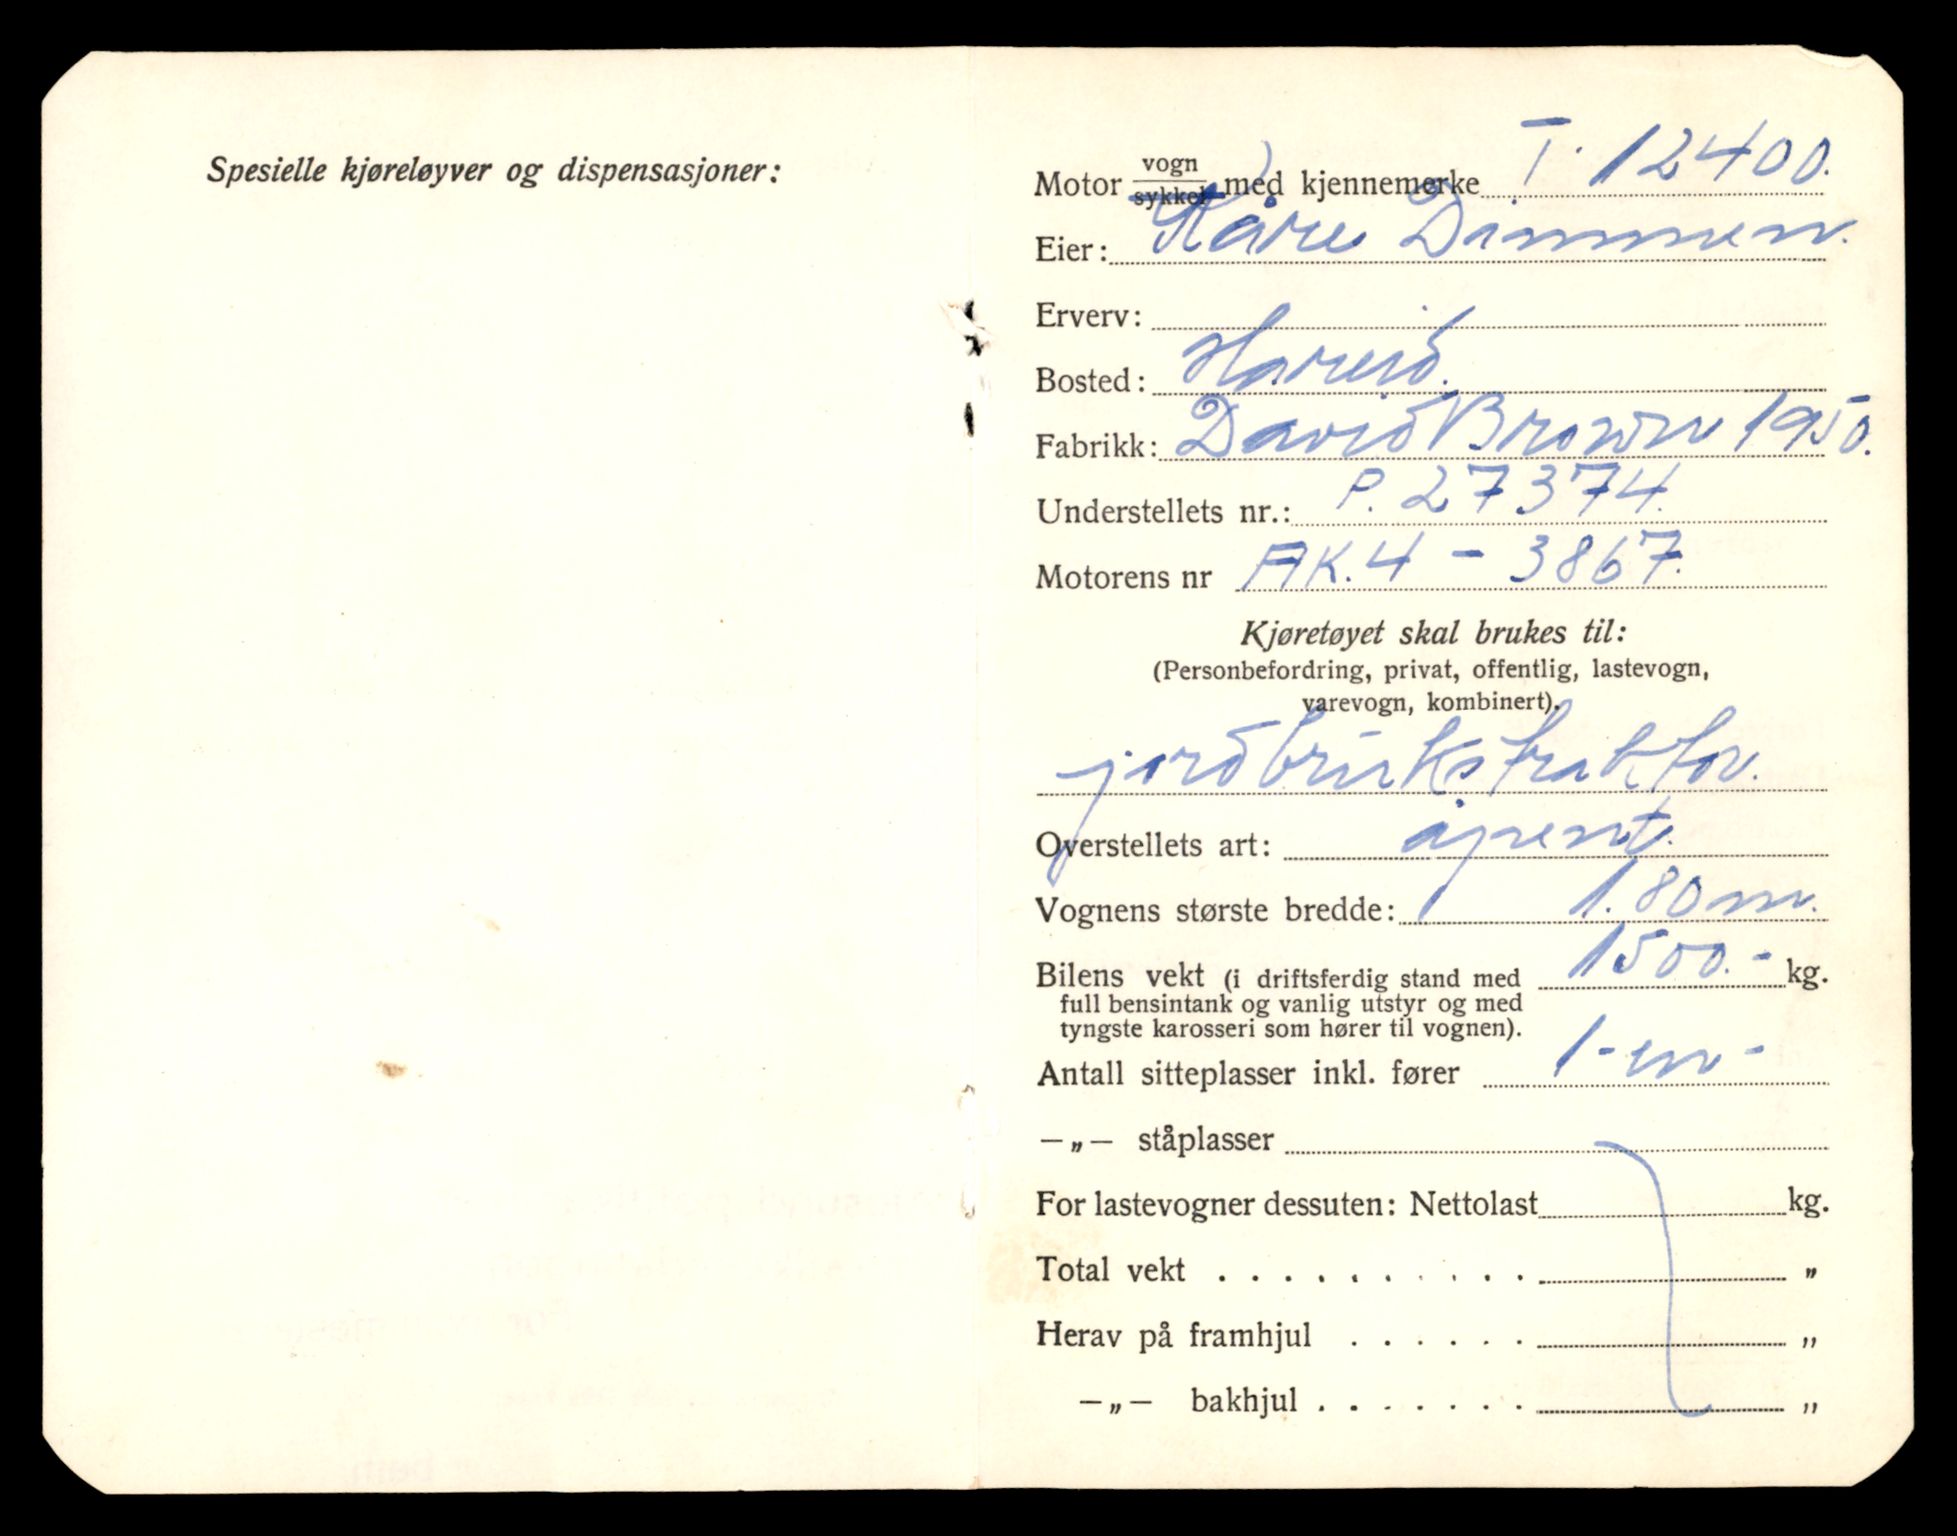 Spesielle kjøreløyver og dispensasjoner:
Motor vogn/sykkel med kjennemerke T. 12400.
Eier: Kåre Dimmen.
Erverv:
Bosted: Hareid.
Fabrikk: David Brown 1950.
Understellets nr.: P. 27374.
Motorens nr AK.4 - 3867.
Kjøretøyet skal brukes til:
(Personbefordring, privat, offentlig, lastevogn,
varevogn, kombinert).
jordbrukstraktor.
Overstellets art: åpent.
Vognens største bredde: 1.80 m.
Bilens vekt (i driftsferdig stand med 1500.- kg.
full bensintank og vanlig utstyr og med
tyngste karosseri som hører til vognen).
Antall sitteplasser inkl. fører 1 - en -
—„— ståplasser
For lastevogner dessuten: Nettolast kg.
Total vekt . . . . . . . . . . „
Herav på framhjul . . . . . . „
—„— bakhjul . . . . . . . „